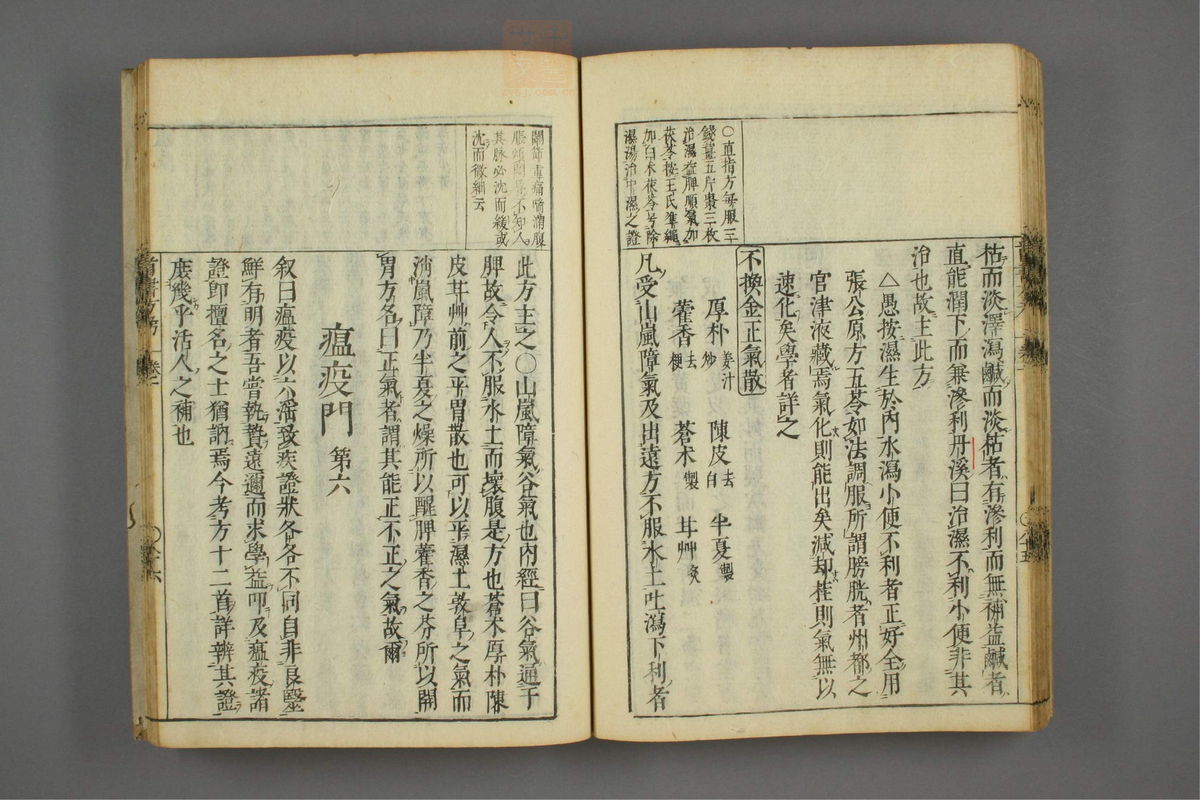 ○直指方每服三
錢薑五片棗三枚
治濕益脾順氣加
茯苓按王氏準繩
加白术茯苓号除
濕湯治中濕之證
枯而淡澤瀉鹹而淡枯者有滲利而無補益鹹者
直能潤下而兼滲利丹溪曰治濕不利小便非其
治也故主此方
△愚按濕生於內水瀉小便不利者正好全用
張公原方五苓如法調服所謂膀胱者州都之
官津液藏焉氣化則能出矣減却桂則氣無以
速化矣學者詳之
不換金正氣散
厚朴姜汁炒 陳皮去白 半夏製
藿香去梗 蒼术製 甘艸炙
凡受山嵐障氣及出遠方不服水土吐瀉下利者
關節重痛喘滿腹
脹煩悶昏不知人
其脉必沈而緩或
沈而微細云
此方主之○山嵐障氣谷氣也內經曰谷氣通于
脾故令人不服水土而壞腹是方也蒼术厚朴陳
皮甘艸前之平胃散也可以平濕土敦阜之氣而
消嵐障乃半夏之燥所以醒脾藿香之芬所以開
胃方名曰正氣者謂其能正不正之氣故爾
瘟疫門 第六
叙曰瘟疫以六淫致疾證狀各各不同自非良醫
鮮有明者吾嘗執贄遠邇而求學益叩及瘟疫諸
證即擅名之士猶訥焉今考方十二首詳辨其證
庶幾乎活人之補也
卷二
○六十六